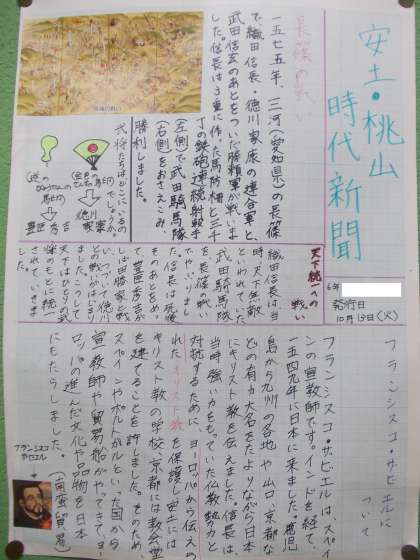 安土・桃山
時代新聞
6年
発行日
10月13日(火)
長篠の戦い
一五七五年、三河(愛知県)の長篠
で、織田信長・徳川家康の連合軍と、
武田信玄のあとをついだ勝頼軍が戦いま
した。信長は3重に作った馬防柵と三千
丁の鉄砲連続射撃
(左側)で武田騎馬隊
(右側)をおさえこみ、
勝利しました。
長篠の戦い
武将たちはどこにいるの
でしょうか。
徳川
家康
豊臣秀吉
天下統一への
戦い
織田信長は当
時、天下無敵
といわれてた
武田騎馬隊
を長篠の戦い
でやぶりまし
た。信長は死後
そのあとをめ
ぐって豊臣秀吉が
しば田勝家と戦
い、ついで徳川
との戦がはじまり
ました。こうして
天下はひとりの武
将のもとに統一
されていきま
す。
フランシスコ・サビエルに
ついて
フランシスコ・サビエルはスペイ
ンの宣教師です。インドを経て、
一五四九年に日本に来ました。鹿児
島から九州の各地や山口、京都な
どの有力大名をたよりながら日本
にキリスト教を伝えました。信長は、
当時強い力をもっていた仏教勢力と
対抗するために、ヨーロッパから伝えら
れたキリスト教を保護し、安土には
キリスト教の学校、京都には教会堂
を建てることを許しました。そのため、
スペインやポルトガルといった国から
宣教師や貿易船がやってきてヨー
ロッパの進んだ文化や品物を日本
にもたらしました。(南蛮貿易)
フランシスコ
サビエル